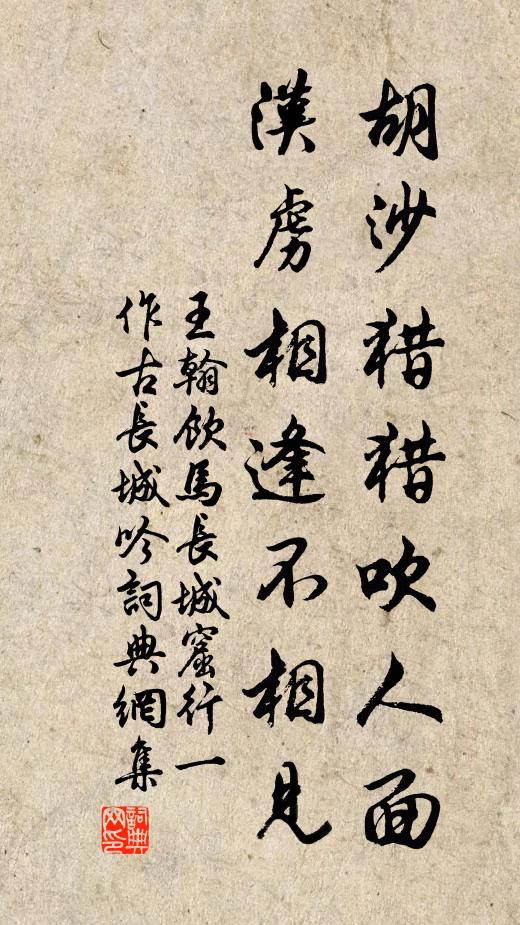 胡沙猎猎吹人面
漢虏相逢不相見
王翰飲馬長城窟行一
作古長城吟詞典網集
詞典
网印